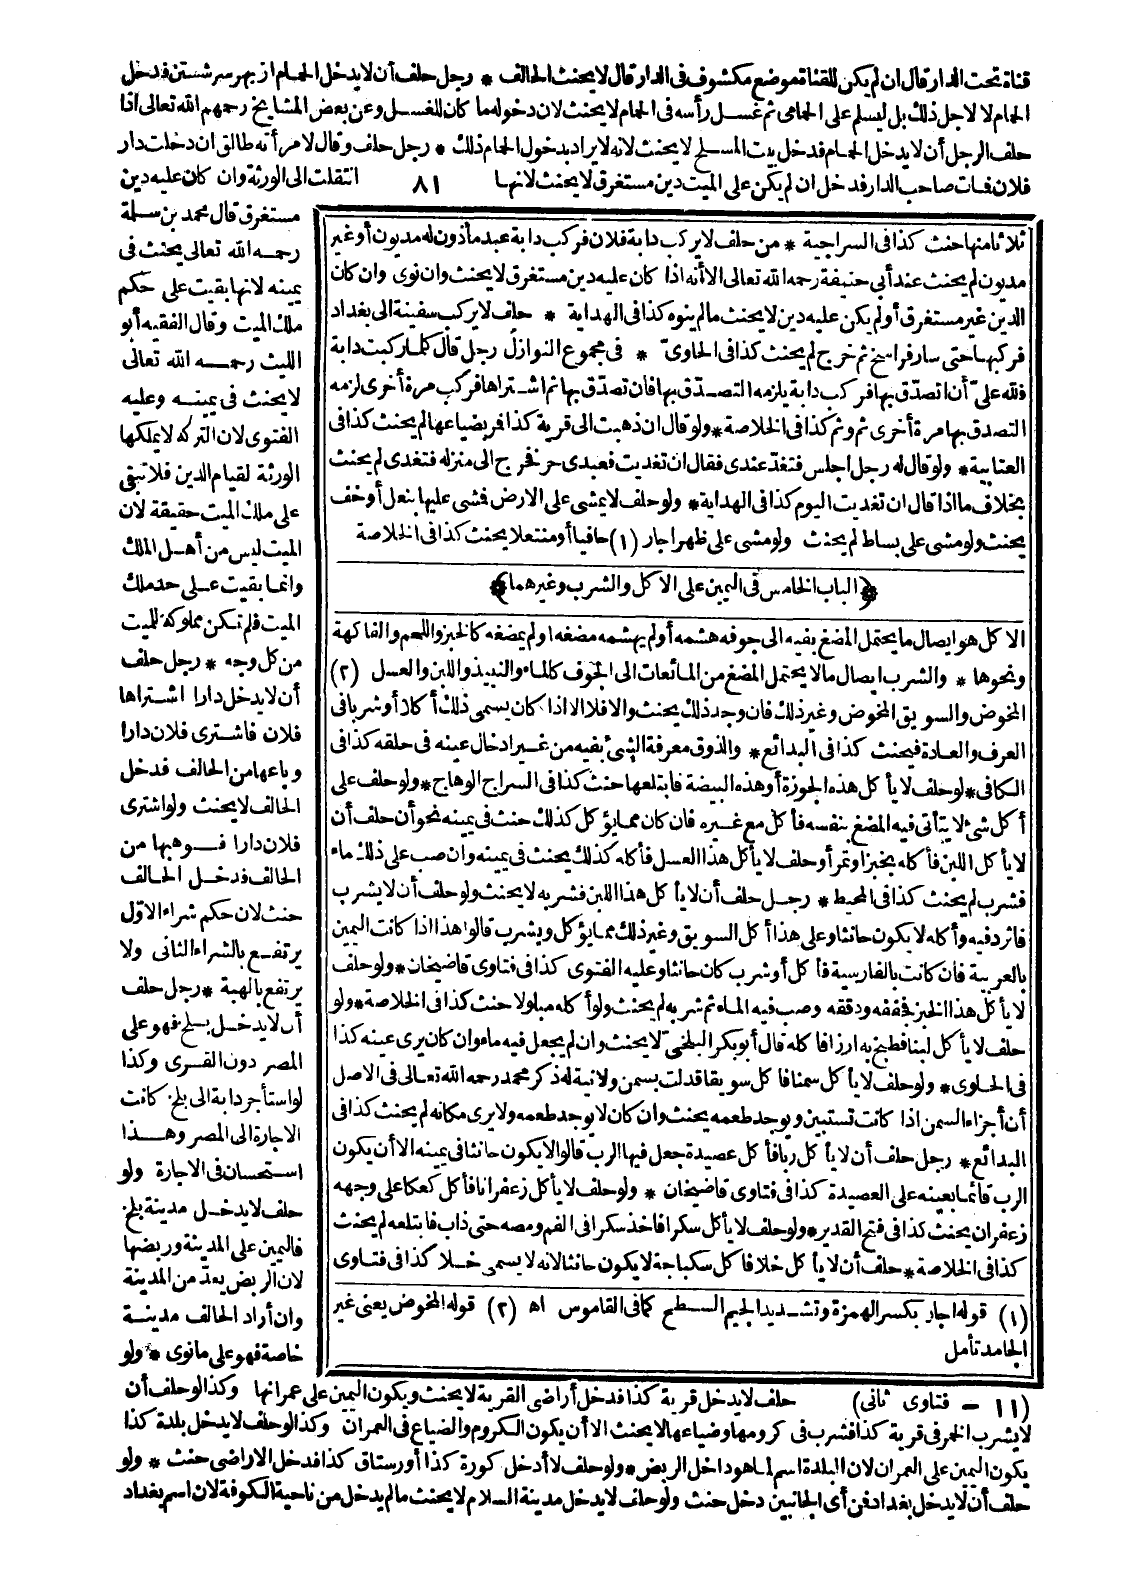 قناة تحت الدار قال ان لم يكن للقناة موضع مكشوف فى الدار قال لا يحنث الحالف * رجل حلف أن لا يدخل الحمام از بهر سر شستن فدخل
الحمام لا لاجل ذلك بل ليسلم على الحمامى ثم غسل رأسه فى الحمام لا يحنث لان دخوله ما كان للغسل وعن بعض المشايخ رحمهم الله تعالى اذا
حلف الرجل أن لا يدخل الحمام فدخل بيت المسلخ لا يحنث لانه لا يراد بدخول الحمام ذلك * رجل حلف وقال لامرأته طالق ان دخلت دار
فلان فمات صاحب الدار فدخل ان لم يكن على الميت دين مستغرق لا يحنث لانها ٨١ انتقلت الى الورثة وان كان عليه دين
مستغرق قال محمد بن سلمة
رحمه الله تعالى يحنث فى
يمينه لانها بقيت على حكم
ملك الميت وقال الفقيه أبو
الليث رحمه الله تعالى
لا يحنث فى يمينه وعليه
الفتوى لان التركة لا يملكها
الورثة لقيام الدين فلا تبقى
على ملك الميت حقيقة لان
الميت ليس من أهل الملك
وانما بقيت على حد ملك
الميت فلم تكن مملوكة للميت
من كل وجه * رجل حلف
أن لا يدخل دارا اشتراها
فلان فاشترى فلان دارا
وباعها من الحالف فدخل
الحالف لا يحنث ولو اشترى
فلان دارا فوهبها من
الحالف فدخل الحالف
حنث لان حكم شراء الاوّل
يرتفع بالشراء الثانى ولا
يرتفع بالهبة * رجل حلف
أن لا يدخل بلخ فهو على
المصر دون القرى وكذا
لو استأجر دابة الى بلخ كانت
الاجارة الى المصر وهذا
استحسان فى الاجارة ولو
حلف لا يدخل مدينة بلخ
فاليمين على المدينة وربضها
لان الربض يعدّ من المدينة
وان أراد الحالف مدينة
خاصة فهو على ما نوى * ولو
ثلاثا منها حنث كذا فى السراجية * من حلف لا يركب دابة فلان فركب دابة عبد مأذون له مديون أو غير
مديون لم يحنث عند أبى حنيفة رحمه الله تعالى الا أنه اذا كان عليه دين مستغرق لا يحنث وان نوى وان كان
الدين غير مستغرق أو لم يكن عليه دين لا يحنث ما لم ينوه كذا فى الهداية * حلف لا يركب سفينة الى بغداد
فركبها حتى سار فراسخ ثم خرج لم يحنث كذا فى الحاوى * فى مجموع النوازل رجل قال كلما ركبت دابة
فلله علىّ أن اتصدّق بها فركب دابة يلزمه التصدق بها فان تصدّق بها ثم اشتراها فركب مرة أخرى لزمه
التصدق بها مرة أخرى ثم وثم كذا فى الخلاصة * ولو قال ان ذهبت الى قرية كذا فر بضياعها لم يحنث كذا فى
العتابية * ولو قال له رجل اجلس فتغدّ عندى فقال ان تغديت فعبدى حر فخرج الى منزله فتغدى لم يحنث
بخلاف ما اذا قال ان تغديت اليوم كذا فى الهداية * ولو حلف لا يمشى على الارض فمشى عليها بنعل أو خف
يحنث ولو مشى على بساط لم يحنث ولو مشى على ظهر اجار (١) حافيا أو منتعلا يحنث كذا فى الخلاصة
﴿الباب الخامس فى اليمين على الاكل والشرب وغيرهما﴾
الاكل هو ايصال ما يحتمل المضغ بفيه الى جوفه هشمه أو لم يهشمه مضغه او لم يمضغه كالخبز واللحم والفاكهة
ونحوها * والشرب ايصال ما لا يحتمل المضغ من المائعات الى الجوف كالماء والنبيذ واللبن والعسل (٢)
المخوض والسويق المخوض وغير ذلك فان وجد ذلك يحنث والا فلا الا اذا كان يسمى ذلك أكلا أو شربا فى
العرف والعادة فيحنث كذا فى البدائع * والذوق معرفة الشئ بفيه من غير ادخال عينه فى حلقه كذا فى
الكافى * لو حلف لا يأكل هذه الجوزة أو هذه البيضة فابتلعها حنث كذا فى السراج الوهاج * ولو حلف على
أكل شئ لا يتأتى فيه المضغ بنفسه فأكل مع غيره فان كان مما يؤكل كذلك حنث فى يمينه نحو أن حلف أن
لا يأكل اللبن فأكله بخبز او تمر أو حلف لا يأكل هذا العسل فأكله كذلك يحنث فى يمينه وان صب على ذلك ماء
فشرب لم يحنث كذا فى المحيط * رجل حلف أن لا يأكل هذا اللبن فشربه لا يحنث ولو حلف أن لا يشرب
فاثرد فيه وأكله لا يكون حانثا وعلى هذا أكل السويق وغير ذلك مما يؤكل ويشرب قالوا هذا اذا كانت اليمين
بالعربية فان كانت بالفارسية فأكل أو شرب كان حانثا وعليه الفتوى كذا فى فتاوى قاضيخان * ولو حلف
لا يأكل هذا الخبز فجففه ودققه وصب فيه الماء ثم شربه لم يحنث ولو أكله مبلولا حنث كذا فى الخلاصة * ولو
حلف لا يأكل لبنا فطبخ به ارزا فاكله قال أبو بكر البلخىّ لا يحنث وان لم يجعل فيه ماء وان كان يرى عينه كذا
فى الحاوى * ولو حلف لا يأكل سمنا فأكل سويقا قد لت بسمن ولا نية له ذكر محمد رحمه الله تعالى فى الاصل
أن أجزاء السمن اذا كانت تستبين ويوجد طعمه يحنث وان كان لا يوجد طعمه ولا يرى مكانه لم يحنث كذا فى
البدائع * رجل حلف أن لا يأكل ربا فأكل عصيدة جعل فيها الرب قالوا لا يكون حانثا فى يمينه الا أن يكون
الرب قائما بعينه على العصيدة كذا فى فتاوى قاضيخان * ولو حلف لا يأكل زعفرانا فأكل كعكا على وجهه
زعفران يحنث كذا فى فتح القدير * ولو حلف لا يأكل سكرا فاخذ سكرا فى الفم ومصه حتى ذاب فابتلعه لم يحنث
كذا فى الخلاصة * حلف أن لا يأكل خلا فاكل سكباجة لا يكون حانثا لانه لا يسمى خلا كذا فى فتاوى
(١) قوله اجار بكسر الهمزة وتشديد الجيم السطح كما فى القاموس اه (٢) قوله المخوض يعنى غير
الجامد تأمل
(١١ - فتاوى ثانى) حلف لا يدخل قرية كذا فدخل أراضى القرية لا يحنث ويكون اليمين على عمرانها وكذا لو حلف أن
لا يشرب الخمر فى قرية كذا فشرب فى كرومها وضياعها لا يحنث الا أن يكون الكروم والضياع فى العمران وكذا لو حلف لا يدخل بلدة كذا
يكون اليمين على العمران لان البلدة اسم لما هو داخل الربض * ولو حلف لا أدخل كورة كذا أو رستاق كذا فدخل الاراضى حنث * ولو
حلف أن لا يدخل بغداد فمن أى الجانبين دخل حنث ولو حلف لا يدخل مدينة السلام لا يحنث ما لم يدخل من ناحية الكوفة لان اسم بغداد